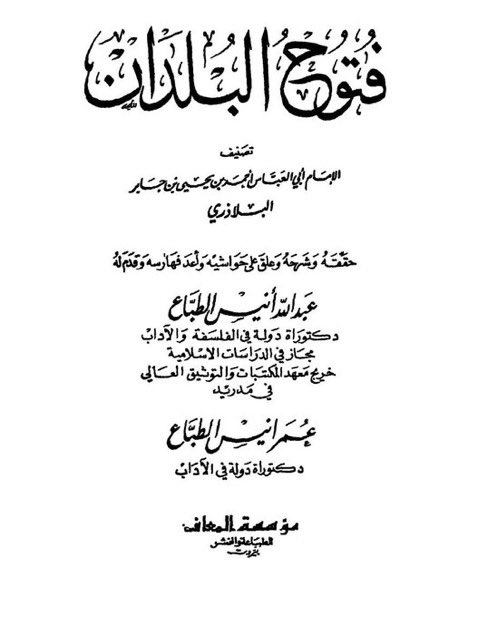 فُتُوحُ البُلدَان
تصنيف
الإمام أبي العبّاس أحمد بن يحيى بن جابر
البلاذري
حَقّقَهُ وَشَرحَهُ وَعَلّقَ عَلى حَوَاشيْه وَأعدّ فهَارسه وَقدّم لهُ
عَبد الله أنيس الطبّاع
دكتوراة دولة في الفلسفة والآداب
مجاز في الدراسات الاسلامية
خريج معهد المكتبات والتوثيق العالي
في مدريد
عُمَر أنيس الطبّاع
دكتوراة دولة في الآداب
مؤسسة المعارف
للطباعة والنشر
بيروت